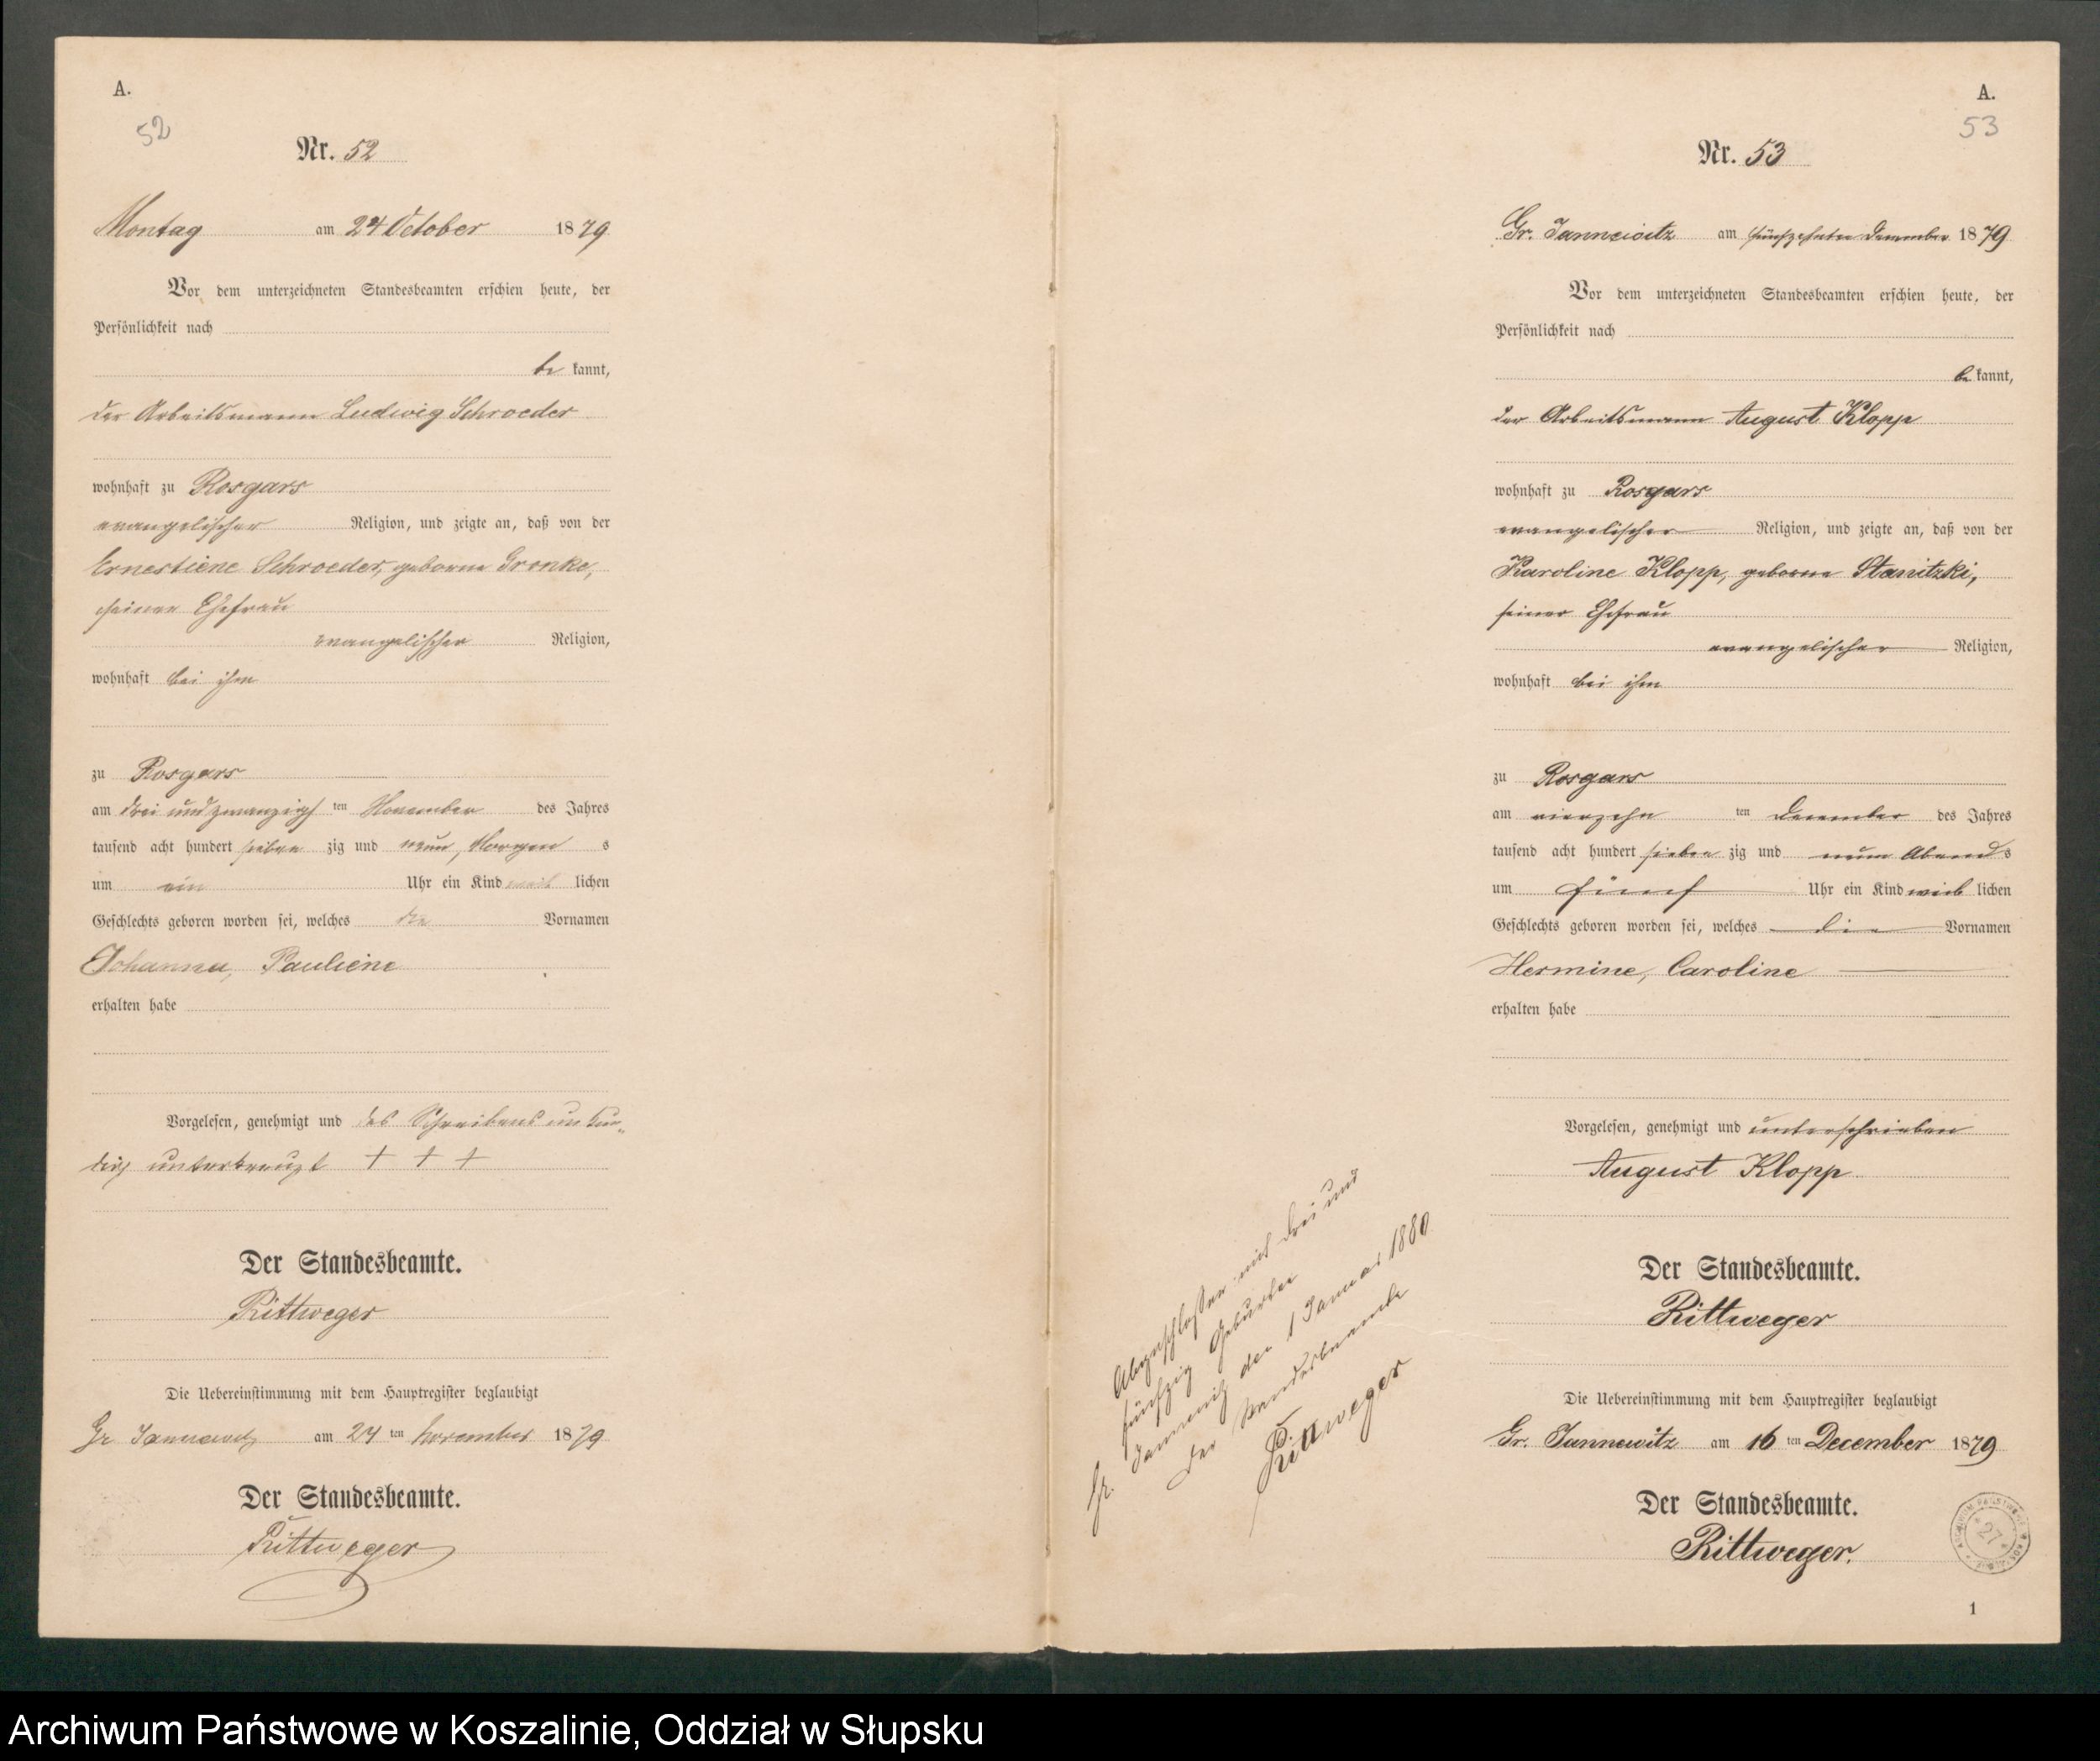 A.
52
Nr. 52
Montag am 24 October 1879
Vor dem unterzeichneten Standesbeamten erschien heute, der
Persönlichkeit nach
be kannt,
der Arbeitsmann Ludwig Schroeder
wohnhaft zu Rosgars
evangelischer Religion, und zeigte an, daß von der
Ernestiene Schroeder, geborne Gronke,
seiner Ehefrau
evangelischer Religion,
wohnhaft bei ihm
zu Rosgars
am drei und zwanzigs ten November des Jahres
tausend acht hundert sieben zig und neun, Morgen s
um ein Uhr ein Kind weib lichen
Geschlechts geboren worden sei, welches die Vornamen
Johanna, Pauliene
erhalten habe
Vorgelesen, genehmigt und des Schreibens unkun-
dig unterkreuzt + + +
Der Standesbeamte.
Rittweger
Die Uebereinstimmung mit dem Hauptregister beglaubigt
Gr Jannewitz am 24 ten November 1879
Der Standesbeamte.
Rittweger
Abgeschlossen mit drei und
fünfzig Geburten
Gr. Jannewitz den 1 Januar 1880
Der Standesbeamte
Rittweger
A.
53
Nr. 53
Gr. Jannewitz am fünfzehnten December 1879
Vor dem unterzeichneten Standesbeamten erschien heute, der
Persönlichkeit nach
be kannt,
der Arbeitsmann August Klopp
wohnhaft zu Rosgars
evangelischer Religion, und zeigte an, daß von der
Karoline Klopp, geborne Stanitzki,
seiner Ehefrau
evangelischer Religion,
wohnhaft bei ihm
zu Rosgars
am vierzehn ten December des Jahres
tausend acht hundert sieben zig und neun Abend s
um fünf Uhr ein Kind weib lichen
Geschlechts geboren worden sei, welches die Vornamen
Hermine, Caroline
erhalten habe
Vorgelesen, genehmigt und unterschrieben
August Klopp
Der Standesbeamte.
Rittweger
Die Uebereinstimmung mit dem Hauptregister beglaubigt
Gr. Jannewitz am 16 ten December 1879
Der Standesbeamte.
Rittweger.
27
1
Archiwum Państwowe w Koszalinie, Oddział w Słupsku